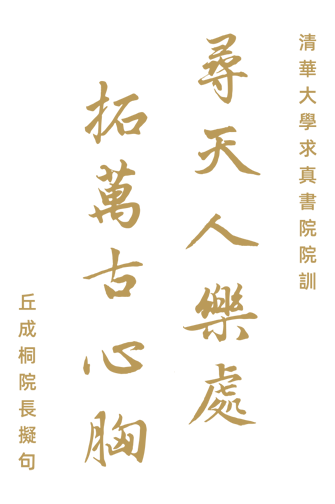 清華大學求真書院院訓
尋天人樂處
拓萬古心胸
丘成桐院長擬句